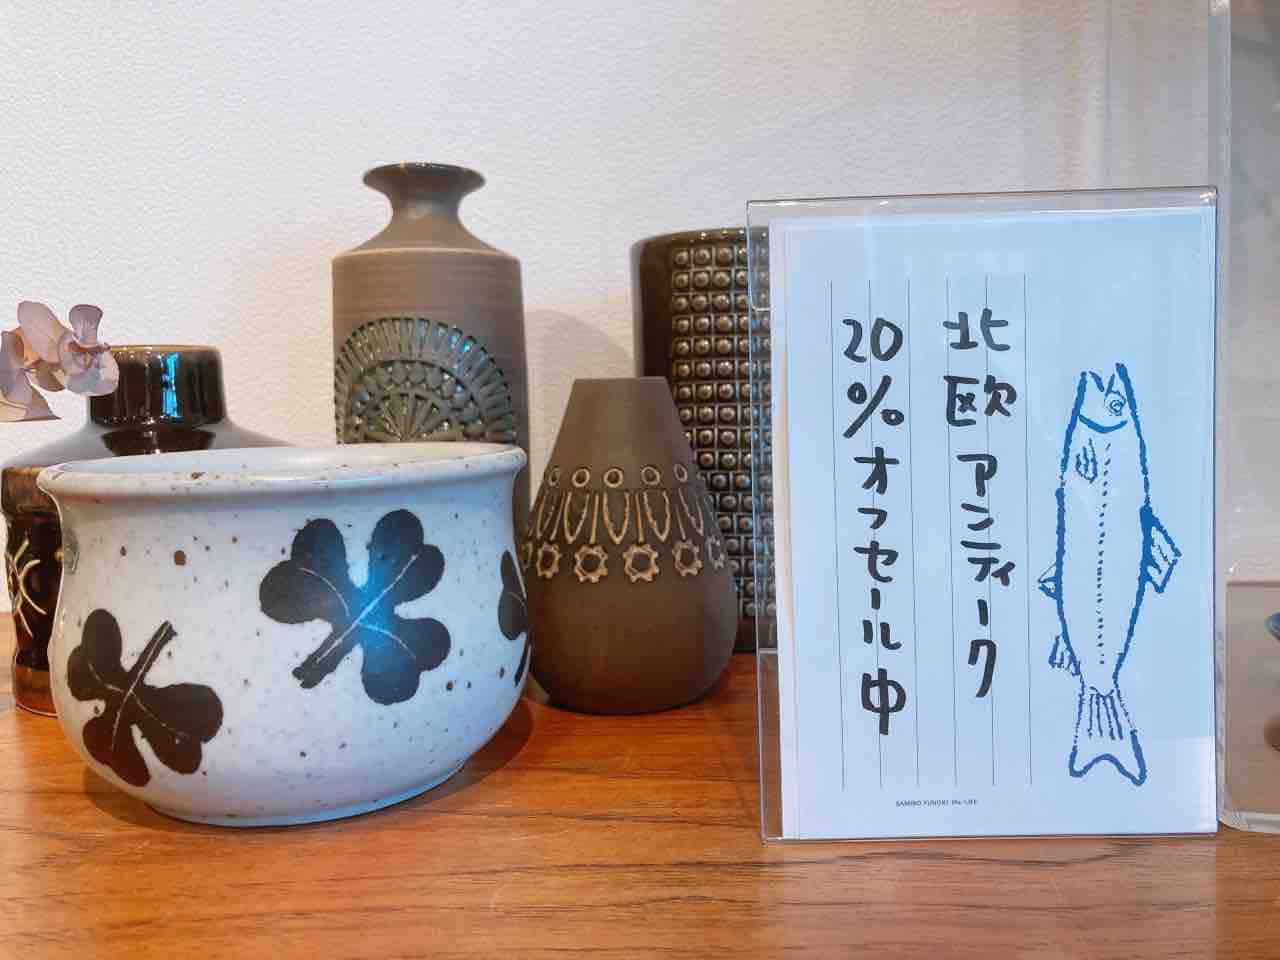 北欧アンティーク
20%オフセール中